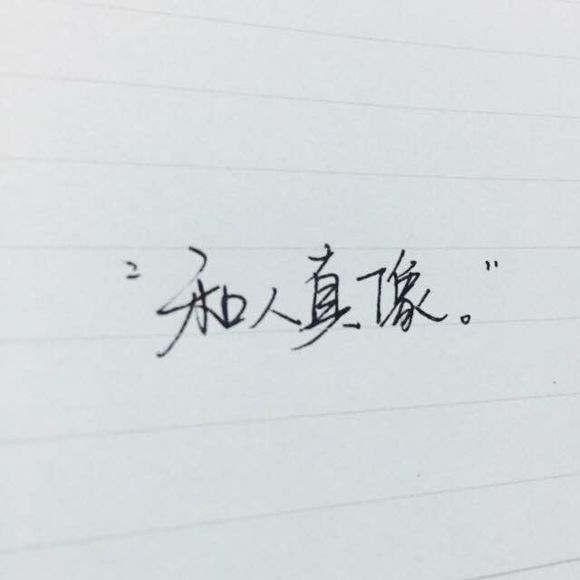 “和人真像。”